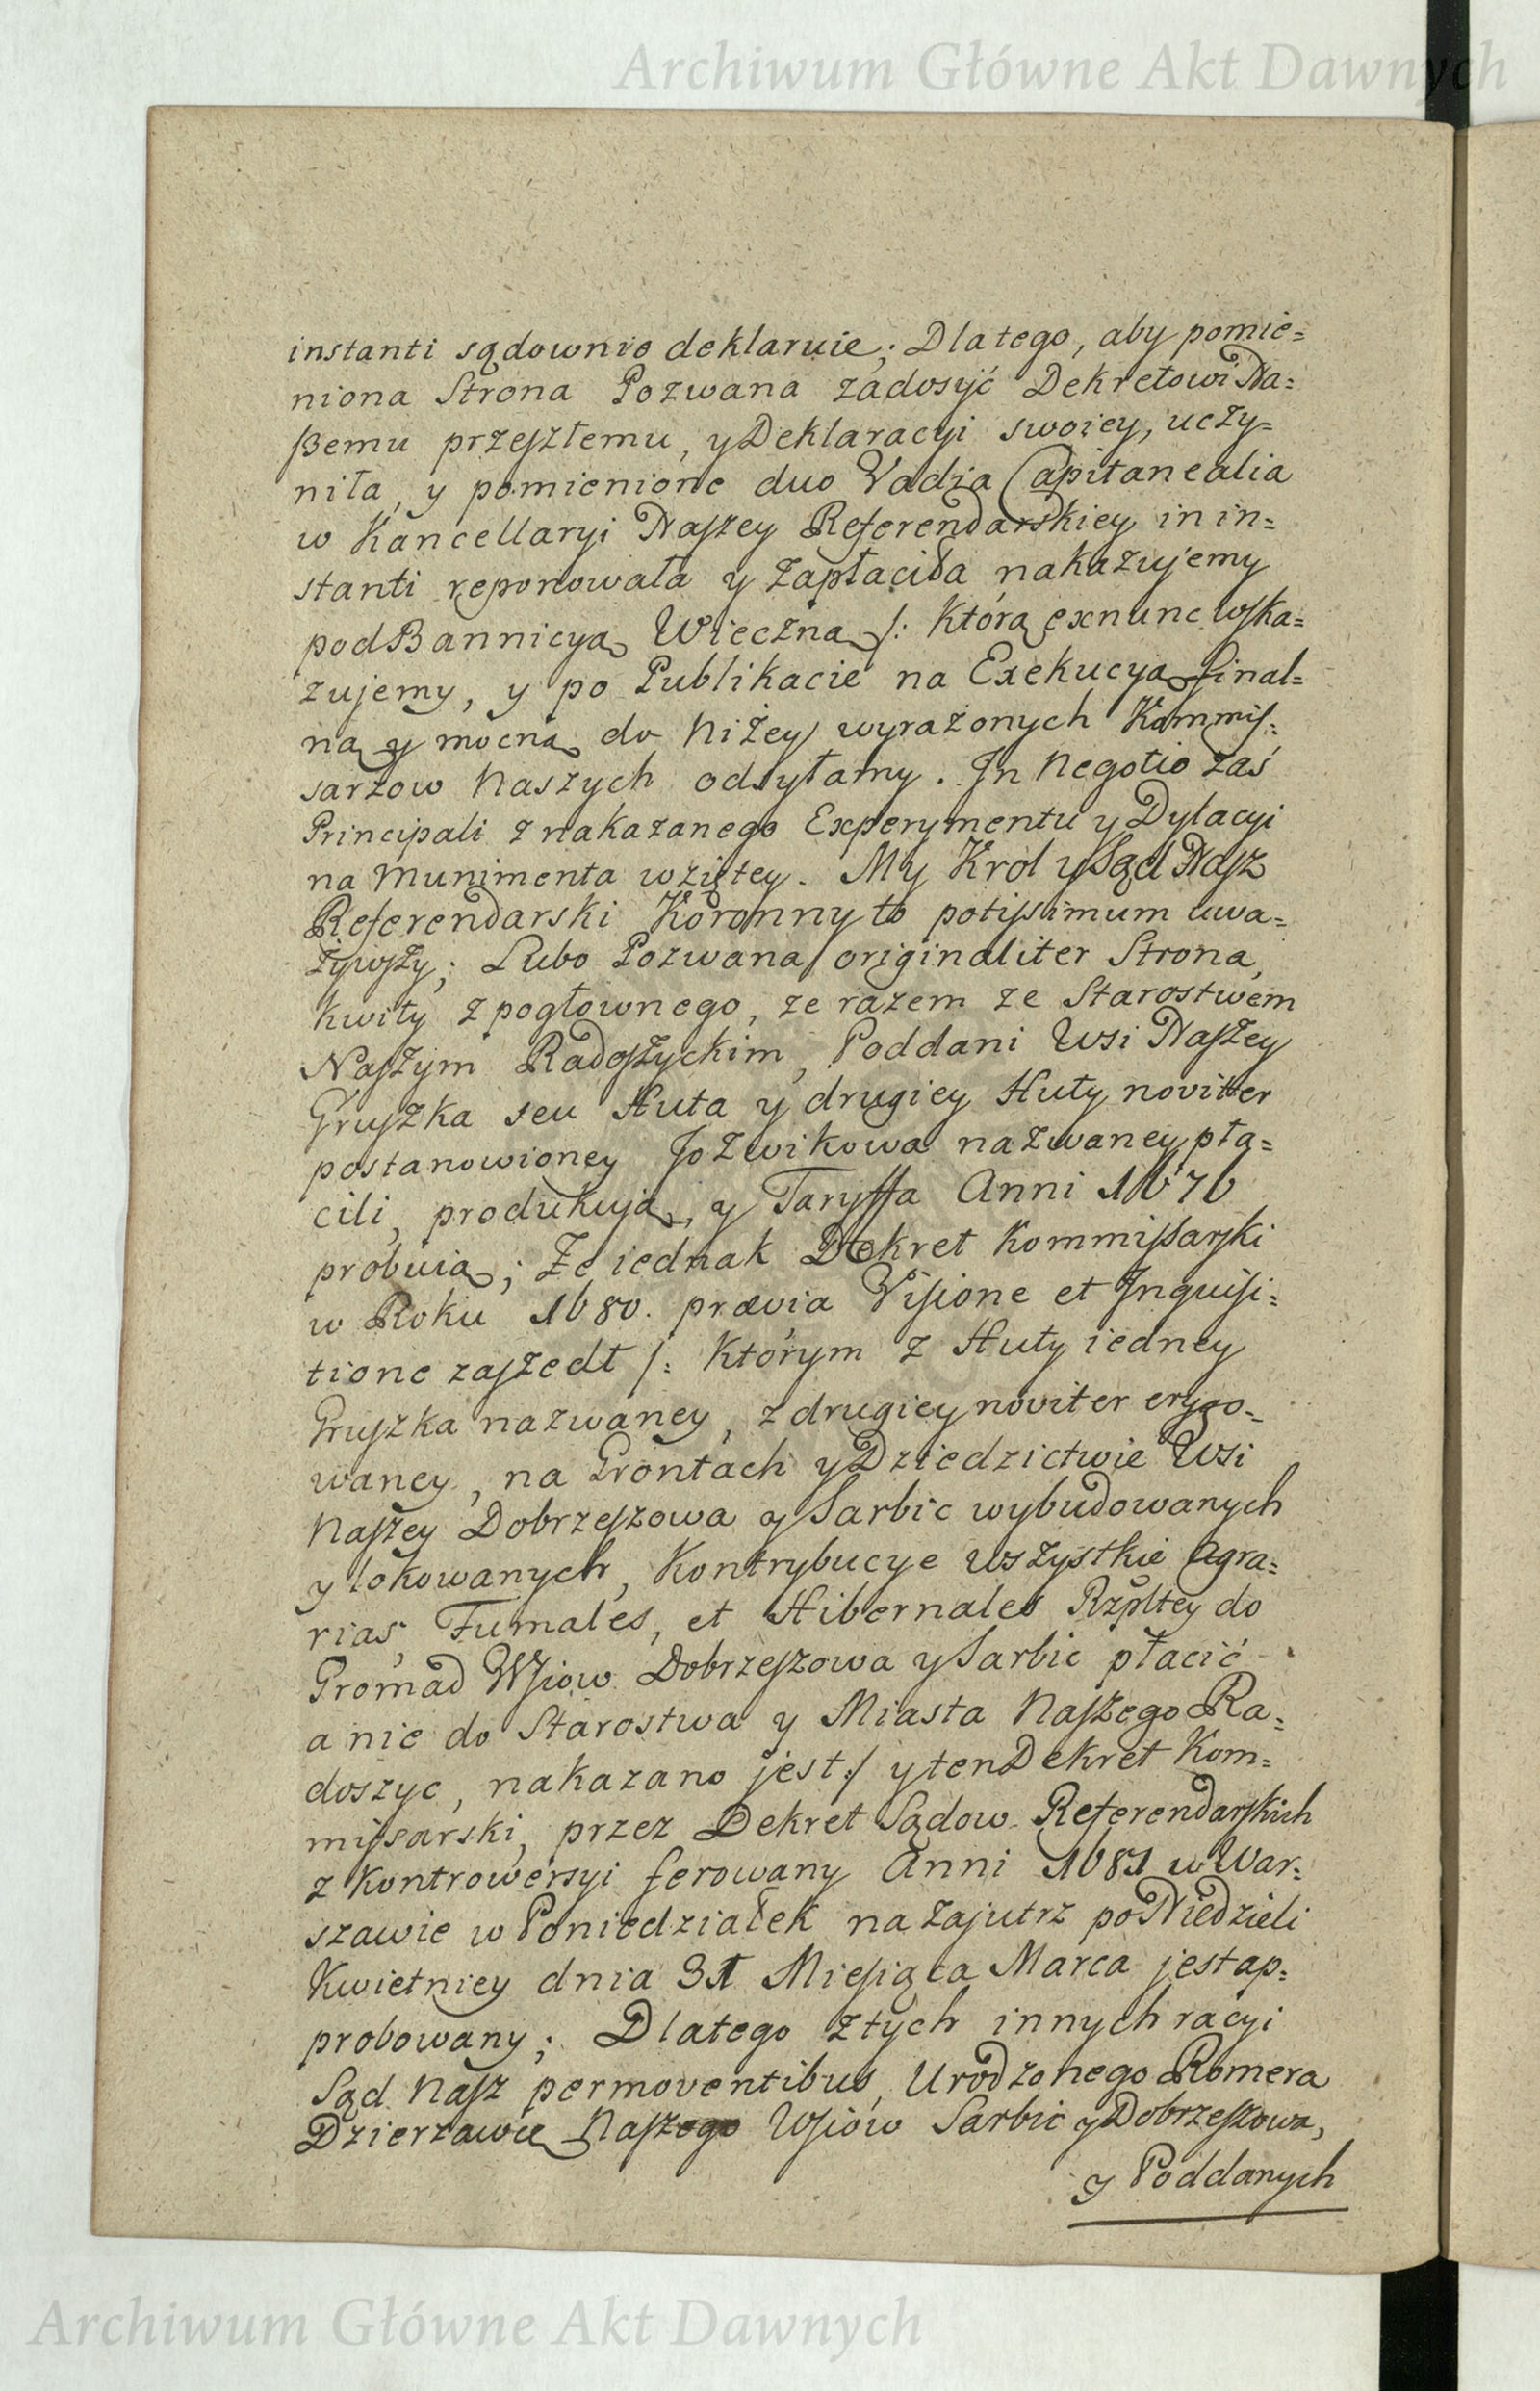 Archiwum Główne Akt Dawnych
instanti sądownie deklaruie; Dlatego, aby pomie=
niona Strona Pozwana zadosyć Dekretowi Na=
ßemu przeszłemu, y Deklaracyi swoiey, uczy=
niła, y pomienione duo Vadia Capitanealia
w Kancellaryi Naszey Referendarskiey in in=
stanti reponowała y zapłaciła nakazujemy
pod Bannicyą Wieczną /: którą exnunc wska=
zujemy, y po Publikacie na Exekucyą final=
ną y mocną do niżey wyrażonych Kommis=
sarzow Naszych odsyłamy. In Negotio zaś
Principali z nakazanego Experymentu y Dylacyi
na Munimenta wziętey. My Krol y Sąd Nasz
Referendarski Koronny to potissimum uwa=
żywszy; Lubo Pozwana originaliter Strona,
kwity z pogłownego, ze razem ze Starostwem
Naszym Radoszyckim, Poddani Wsi Naszey
Gruszka seu Huta y drugiey Huty noviter
postanowioney Jozwikowa nazwaney pła=
cili, produkują, y Taryffa Anni 1676
probuią; Ze iednak Dekret Kommissarski
w Roku 1680. prævia Visione et Inquisi=
tione zaszedł /: Którym z Huty iedney
Gruszka nazwaney, z drugiey noviter erygo=
waney, na Grontach y Dziedzictwie Wsi
Naszey Dobrzeszowa y Sarbic wybudowanych
y lokowanych, Kontrybucye wszystkie Agra=
rias, Fumales, et Hibernales Rzpltey do
Gromad Wsiow Dobrzeszowa y Sarbic płacić
a nie do Starostwa y Miasta Naszego Ra=
doszyc, nakazano jest:/ y ten Dekret Kom=
missarski, przez Dekret Sądow Referendarskich
z kontrowersyi ferowany Anni 1681 w War=
szawie w Poniedziałek nazajutrz po Niedzieli
Kwietniey dnia 31 Miesiąca Marca jest ap=
probowany; Dlatego z tych innych racyi
Sąd Nasz permoventibus, Urodzonego Romera
Dzierzawcę Naszego Wsiów Sarbic y Dobrzeszowa,
y Poddanych
Archiwum Główne Akt Dawnych